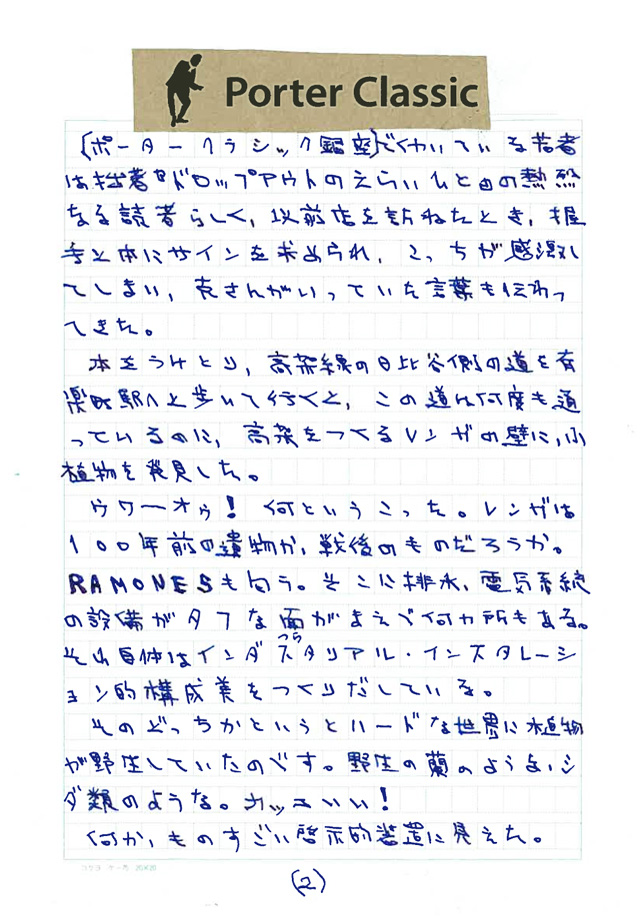 Porter Classic
[ポータークラシック銀座]で働いている若者
は拙著『ドロップアウトのえらいひと』の熱烈
なる読者らしく、以前店を訪ねたとき、握
手と本にサインを求められ、こっちが感激し
てしまい、克さんがいっていた言葉も伝わっ
てきた。
本をうけとり、高架線の日比谷側の道を有
楽町駅へと歩いて行くと、この道は何度も通
っているのに、高架をつくるレンガの壁に、小
植物を発見した。
ウワーオゥ! 何というこった。レンガは
100年前の遺物か、戦後のものだろうか。
RAMONESも匂う。そこに排水、電気系統
の設備がタフな面がまえで何ヵ所もある。
つら
それ自体はインダスタリアル・インスタレーシ
ョン的構成美をつくりだしている。
そのどっちかというとハードな世界に植物
が野生していたのです。野生の蘭のような、シ
ダ類のような。カッコいい!
何か、ものすごい啓示的装置に見えた。
コクヨ ケー75 20×20
(2)